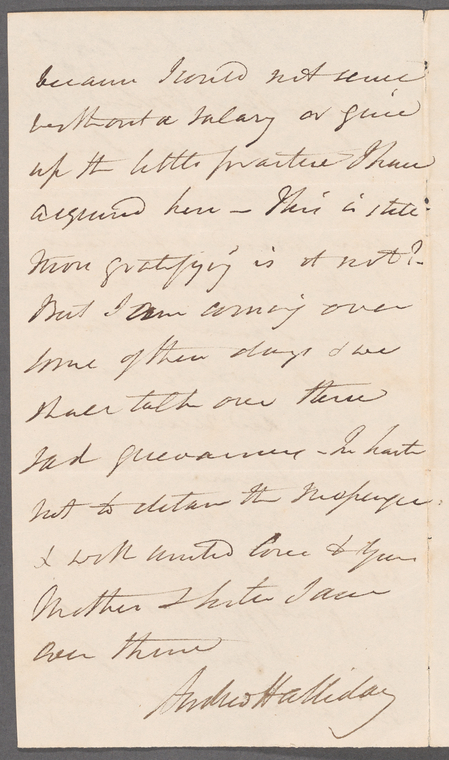 because I would not serve
without a salary or give
up the little practice I have
acquired here – This is still
more gratifying is it not?–
But I am coming over
some of these days & we
shall talk over these
sad grievances – In haste
not to detain the Messenger
& with united love to your
Mother & Sister I am
ever thine
Andrew Halliday